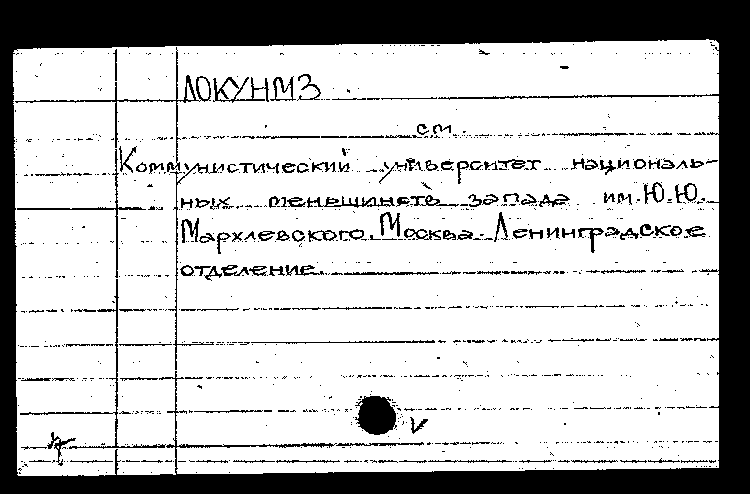 ЛОКУНМЗ
см.
Коммунистический университет националь-
ных меньшинств запада им. Ю.Ю.
Мархлевского. Москва. Ленинградское
отделение.
V